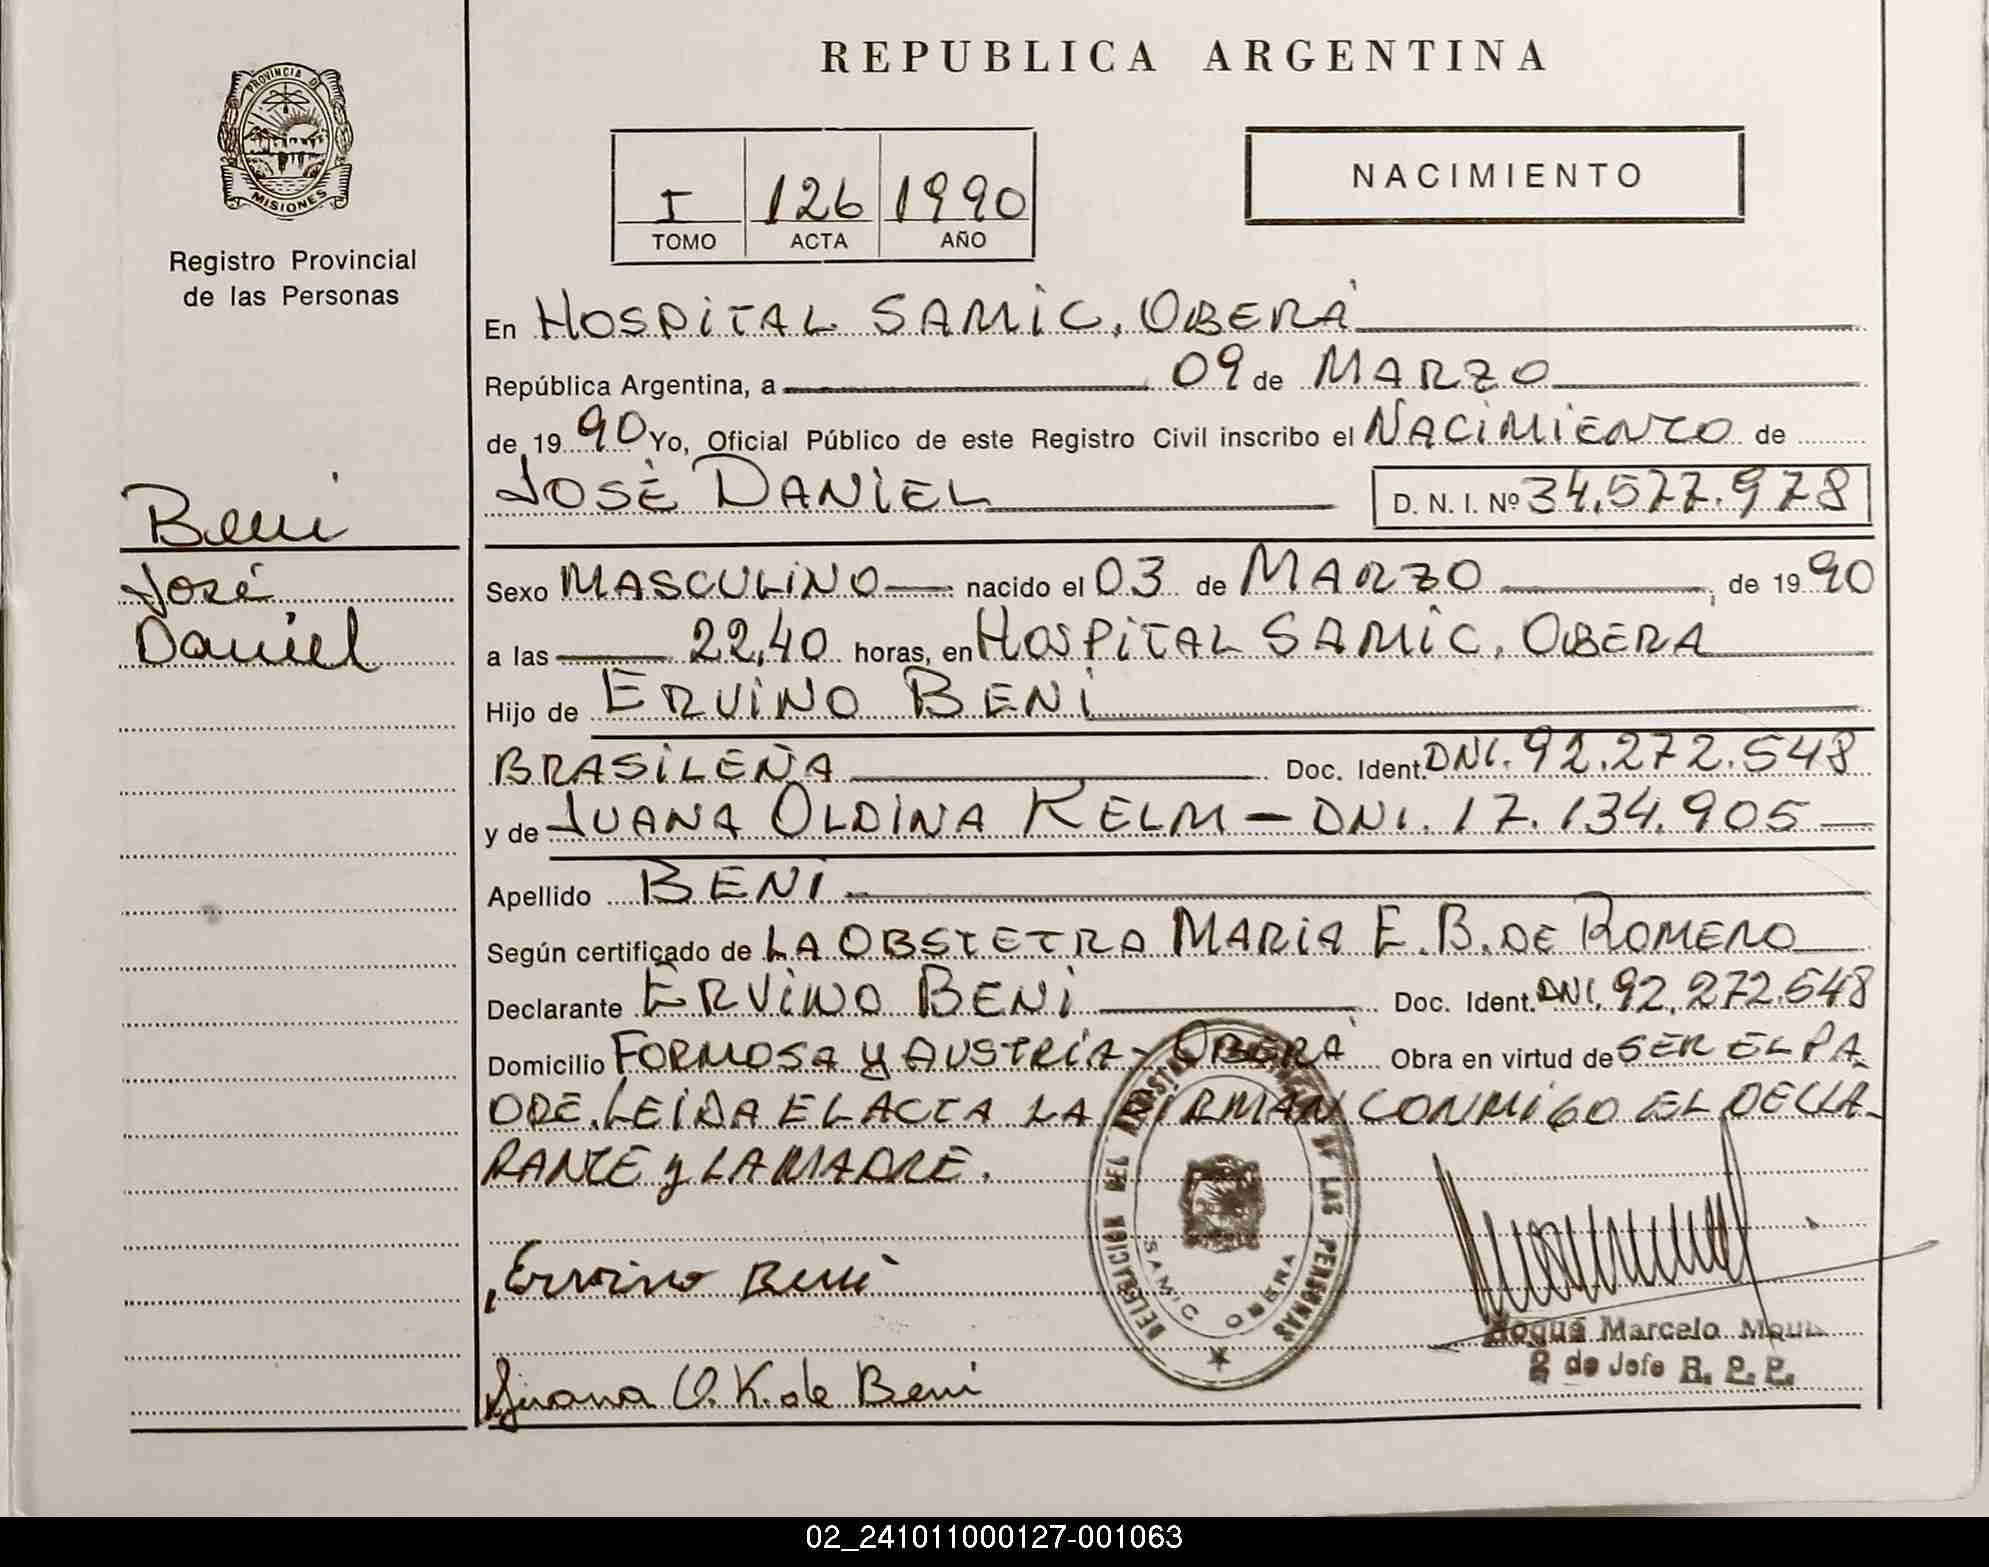 PROVINCIA DE
MISIONES
Registro Provincial
de las Personas
Beni
José
Daniel
REPUBLICA ARGENTINA
I 126 1990
TOMO ACTA AÑO
NACIMIENTO
En HOSPITAL SAMIC, OBERÁ
República Argentina, a 09 de MARZO
de 1990 Yo, Oficial Público de este Registro Civil inscribo el NACIMIENTO de
JOSÉ DANIEL D. N. I. Nº 34.577.978
Sexo MASCULINO nacido el 03 de MARZO, de 1990
a las 22,40 horas, en HOSPITAL SAMIC, OBERA
Hijo de ERVINO BENI
BRASILEÑA Doc. Ident. DNI. 92.272.548
y de JUANA OLDINA KELM - DNI. 17.134.905
Apellido BENI
Según certificado de LA OBSTETRA MARIA E. B. DE ROMERO
Declarante ERVINO BENI Doc. Ident. DNI. 92.272.548
Domicilio FORMOSA Y AUSTRIA - OBERÁ Obra en virtud de SER EL PA
DRE. LEIDA EL ACTA LA FIRMAN CONMIGO EL DECLA
RANTE y LA MADRE.
DELEGACION DEL REGISTRO PROVINCIAL DE LAS PERSONAS
SAMIC OBERA
Ervino Beni
Marcelo
2 do Jefe R. P. P.
Juana O. K. de Beni
02_241011000127-001063